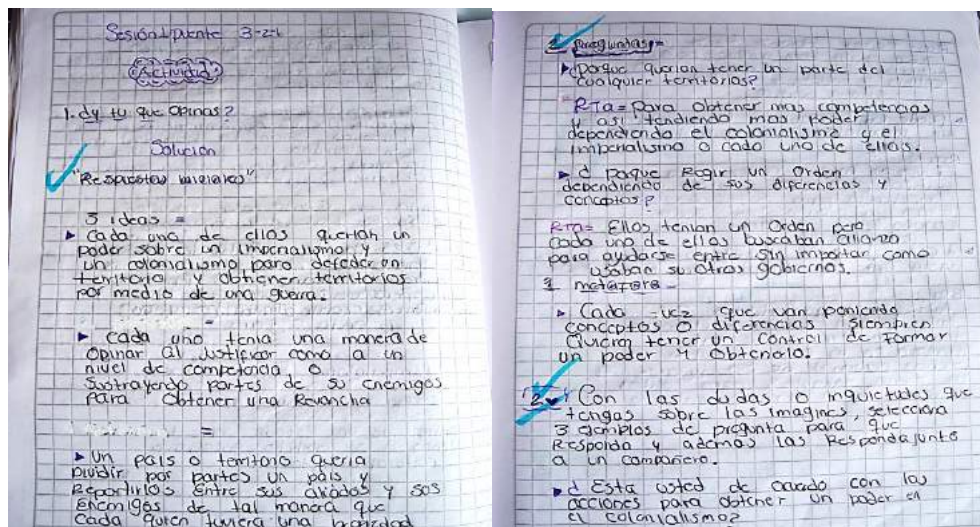 Sesión puente 3-2-1
Actividad
1. ¿y tu que opinas?
Solución
"Respuestas iniciales"
3 ideas =
Cada una de ellas querian un
poder sobre un imperialismo y
un colonialismo para defeder en
territorio y obtener territorios
por medio de una guerra.
Cada uno tenia una manera de
opinar al justificar como a un
nivel de competencia o
sustrayendo partes de su enemigos
para obtener una Revancha
=
Un pais o territorio queria
Dividir por partes un pais y
Repartirlos entre sus aliados y sus
enemigos de tal manera que
Cada quien tuviera una
2 preguntas=
¿porque querian tener un parte del
cualquier territorios?
RTa= Para obtener mas competencias
y asi tendiendo mas poder
dependiendo el colonialismo y el
imperialismo a cada uno de ellos.
¿ porque Regir un Orden
dependiendo de sus diferencias y
conceptos?
RTa= Ellos tenian un Orden pero
cada uno de ellos buscaban alianza
para ayudarse entre sin importar como
usaban su otros gobiernos.
1 metafora -
Cada vez que van poniendo
conceptos o diferencias siempren
Quieren tener un control de formar
un poder y obtenerlo.
2. Con las dudas o inquietudes que
tengas sobre las imagines, selecciona
3 ejemplos de pregunta para que
Responda y ademas las Responda junto
a un compañero.
¿ Esta usted de acuerdo con las
acciones para obtener un poder en
el colonialismo?